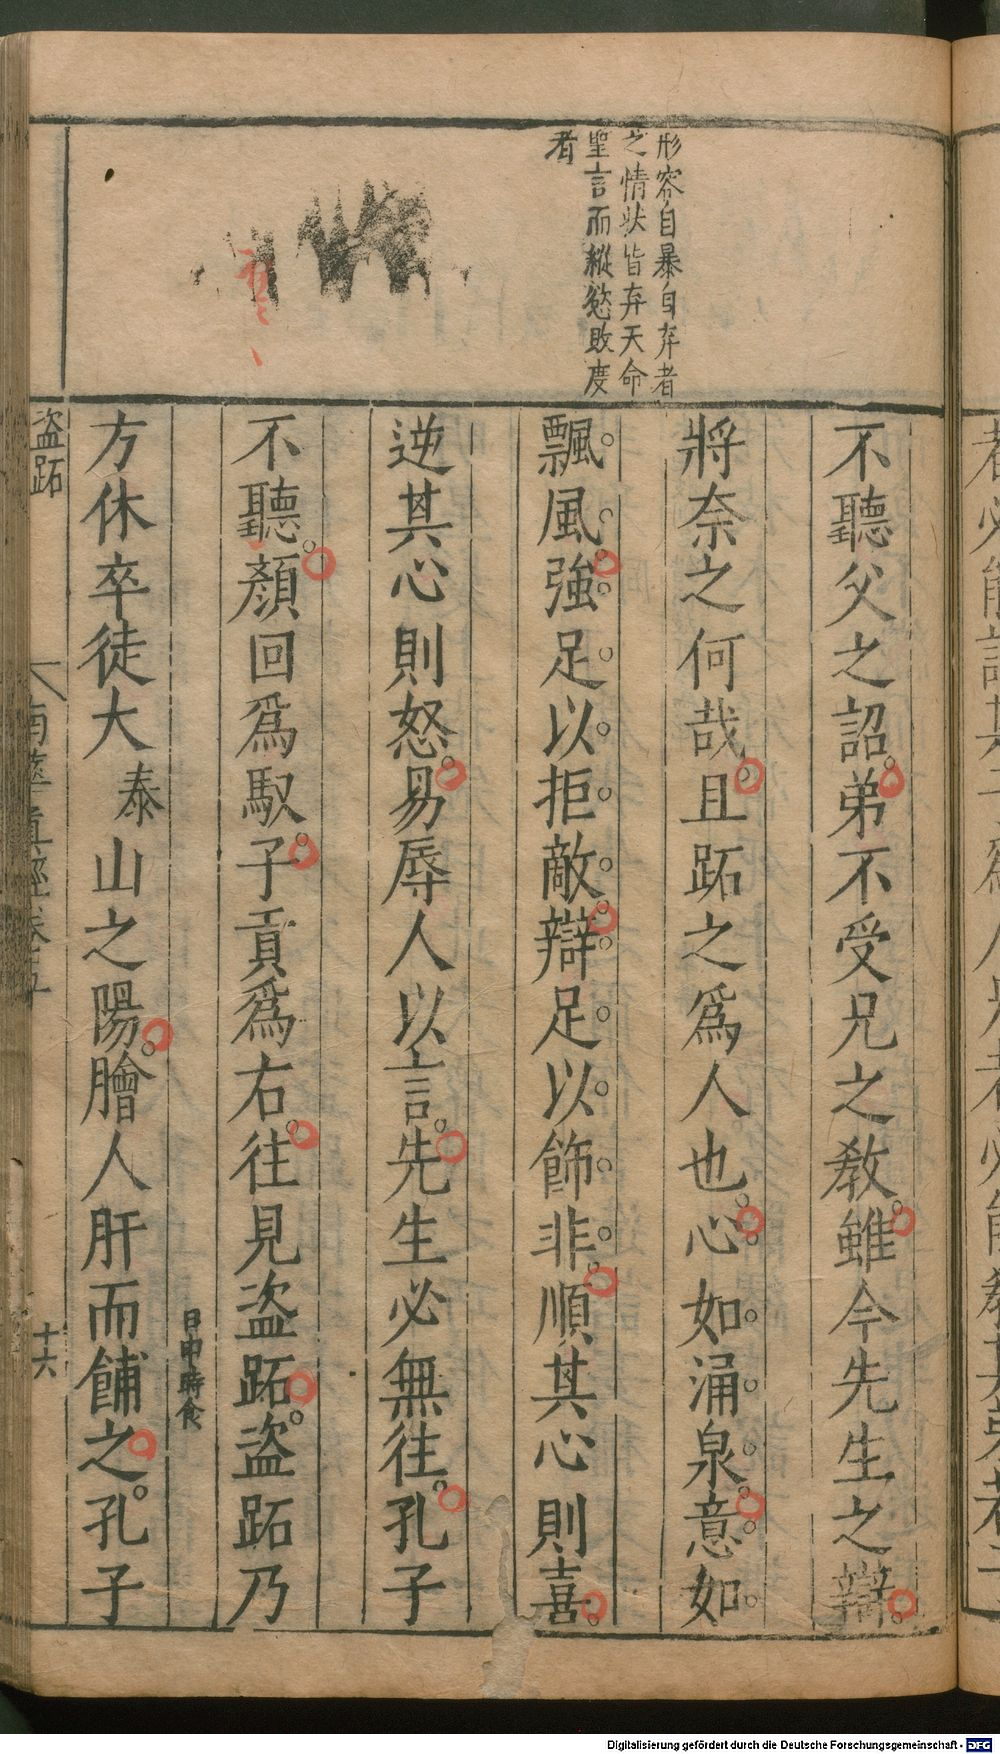 形容自暴自弃者
之情狀皆弃天命
聖言而縱慾敗度
者
不聽父之詔弟不受兄之教雖今先生之辯
將奈之何哉且跖之爲人也心如涌泉意如
飄風強足以拒敵辯足以飾非順其心則喜
逆其心則怒易辱人以言先生必無往孔子
不聽顏回爲馭子貢爲右往見盗跖盗跖乃
日中時食
方休卒徒大泰山之陽膾人肝而餔之孔子
盗跖
南華真經卷
十六
Digitalisierung gefördert durch die Deutsche Forschungsgemeinschaft - DFG